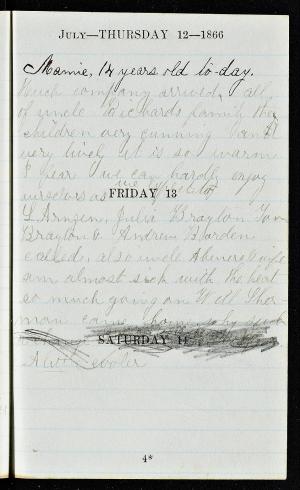 JULY—THURSDAY 12—1866
Mamie, 14 years old to-day.
Much company arrived, all
of uncle Richards family the
children very cunning and
very lively it is so warm
I fear we can hardly enjoy
ourselves as we
FRIDAY 13
L Arnzen, Julia Brayton Tom
Brayton & Andrew Borden
called, also uncle Abners wife
am almost sick with the heat
so much going on Will Sher-
man came home
SATURDAY 14
4*